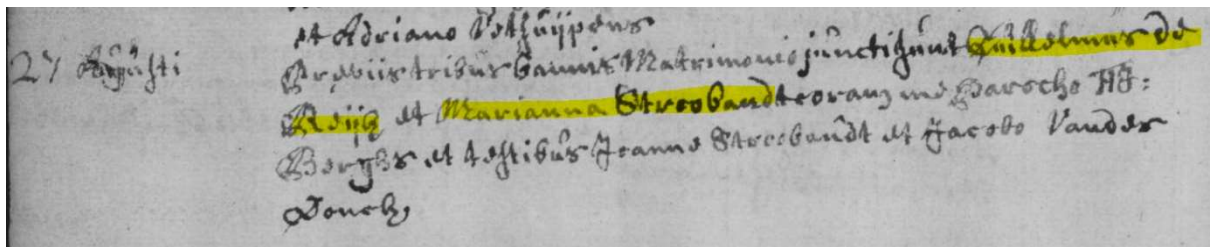 et Adriano Vethuijpens
27 Augusti Praeviis tribus bannis Matrimonio juncti sunt Guillelmus de
Reijck et Marianna Stroobandt coram me Parocho
Berghs et testibus Joanne Stroobandt et Jacobo Vander
Donck,